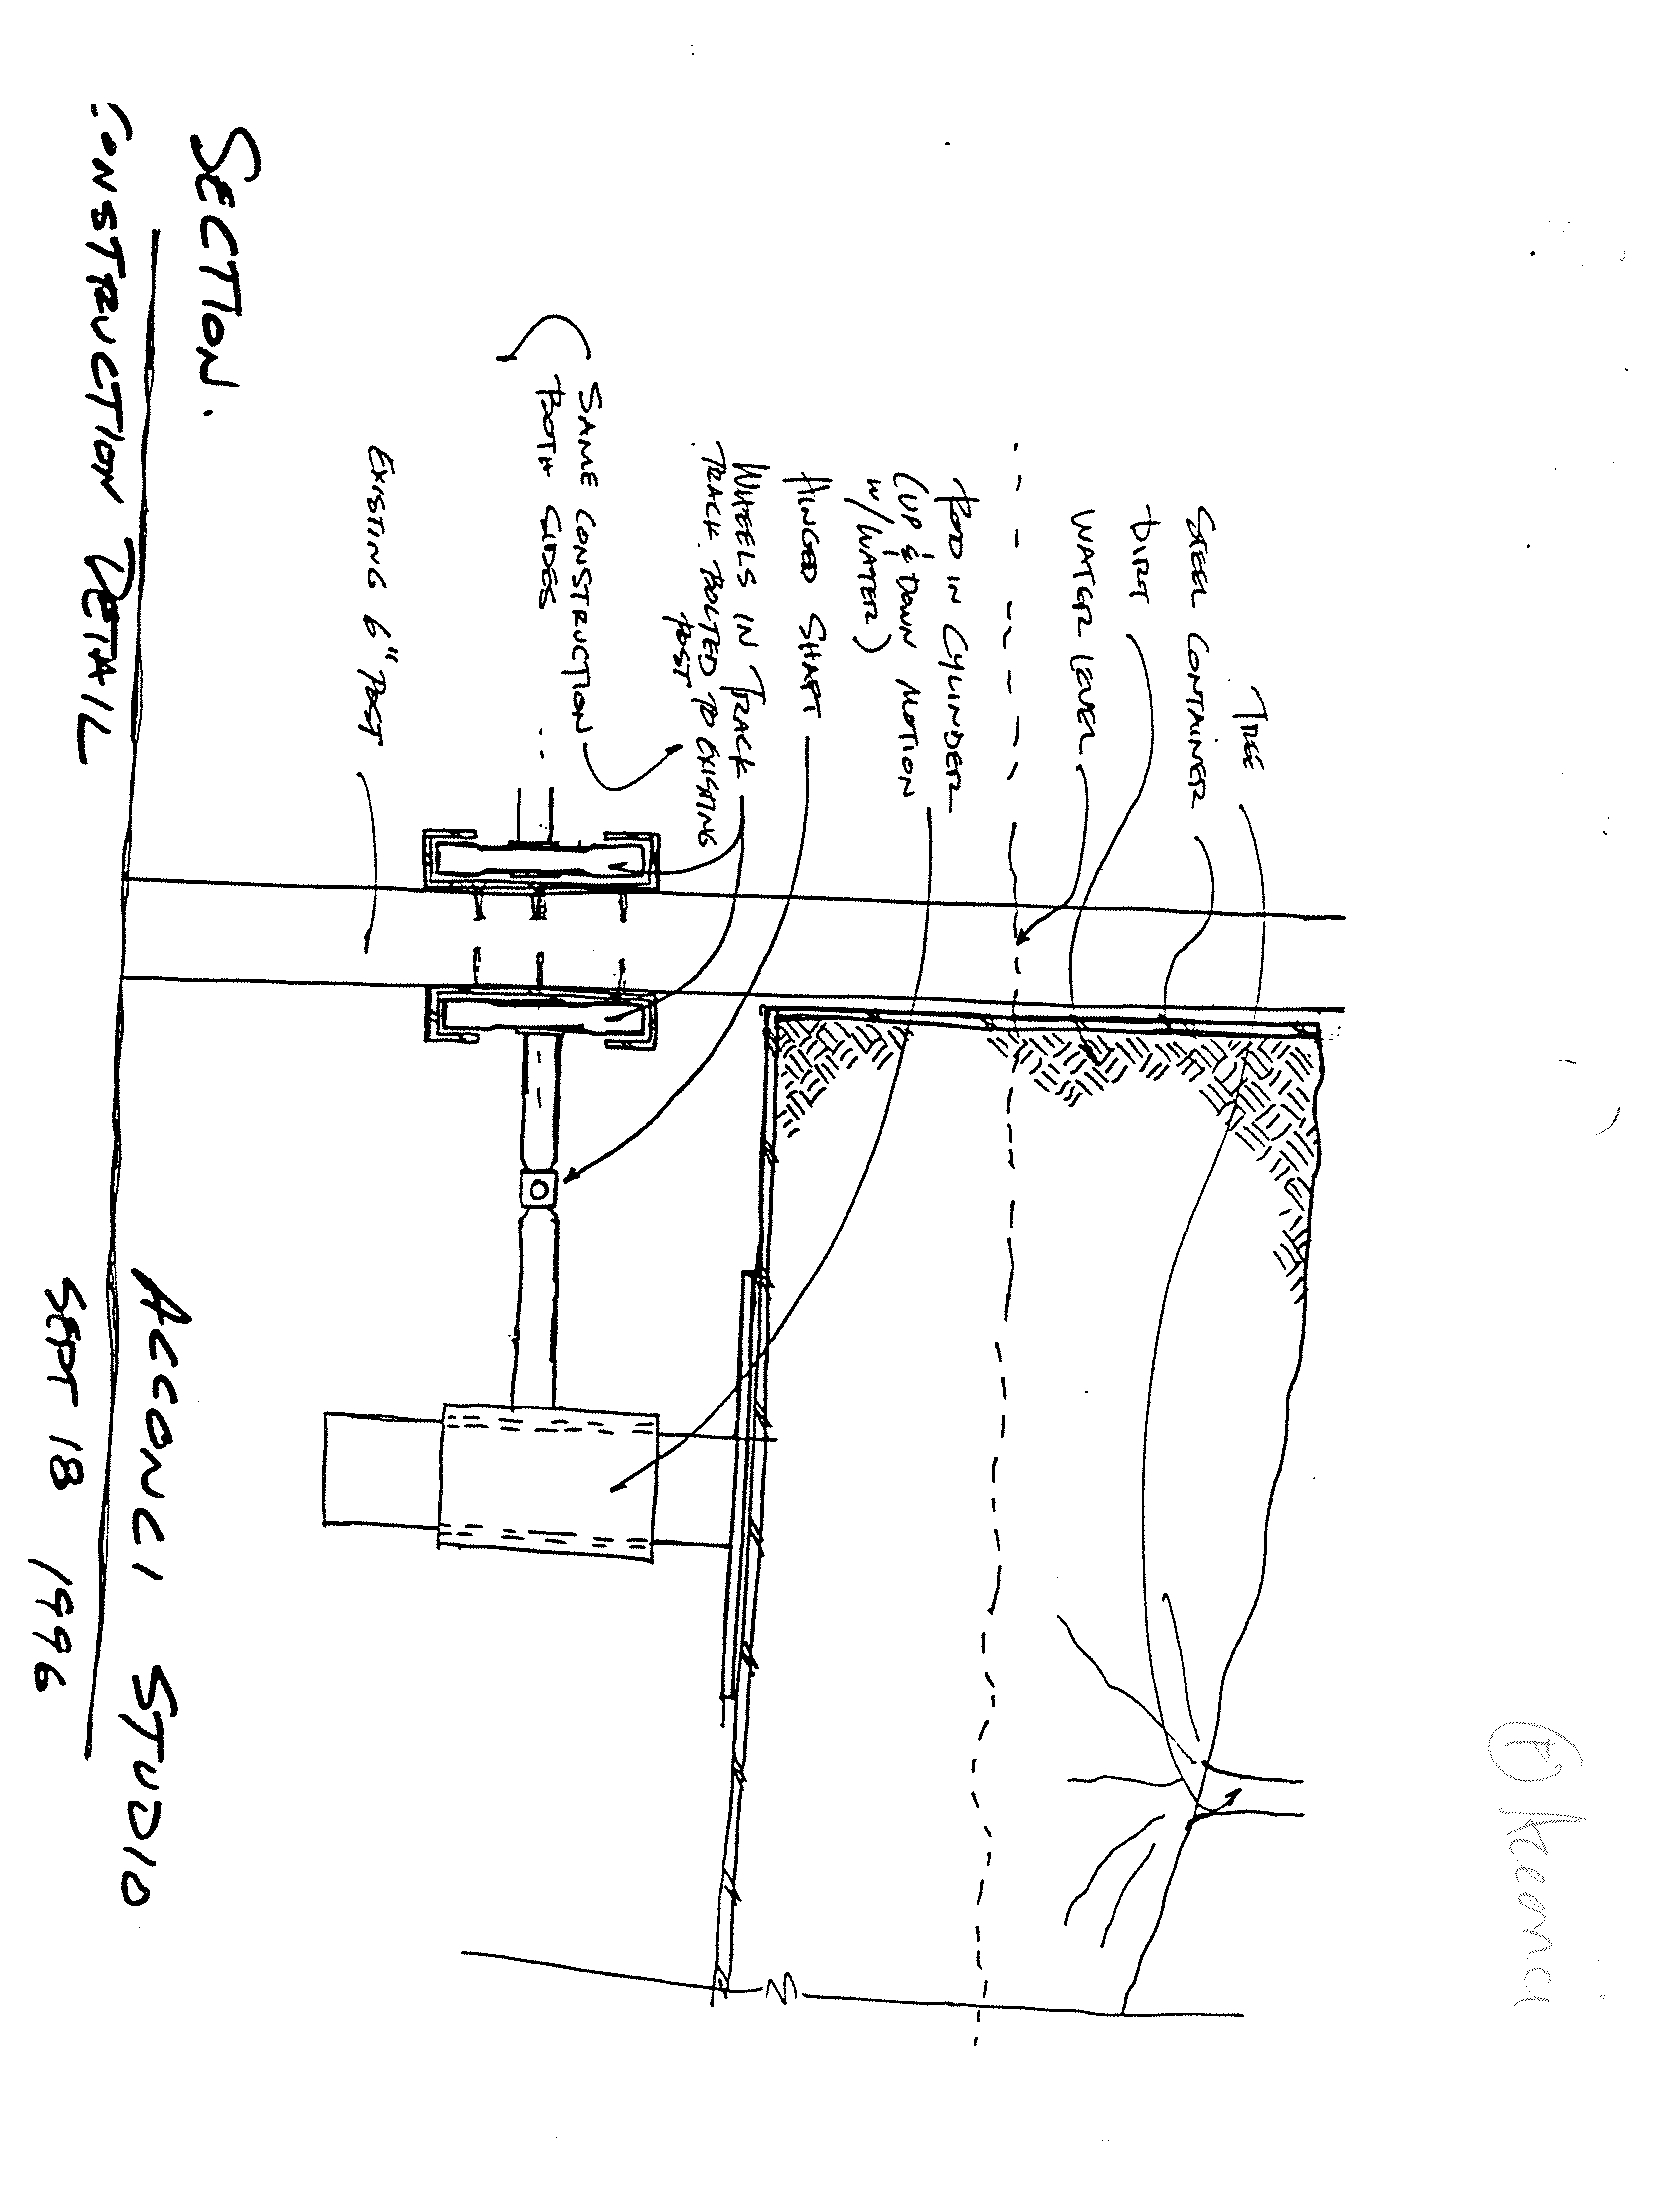 TREE
STEEL CONTAINER
DIRT
WATER LEVEL
ROD IN CYLINDER
(UP & DOWN MOTION
W/WATER)
HINGED SHAFT
WHEELS IN TRACK
TRACK BOLTED TO EXISTING
POST
SAME CONSTRUCTION
BOTH SIDES
EXISTING 6" POST
SECTION.
CONSTRUCTION DETAIL
ACCONCI STUDIO
SEPT 18 1996